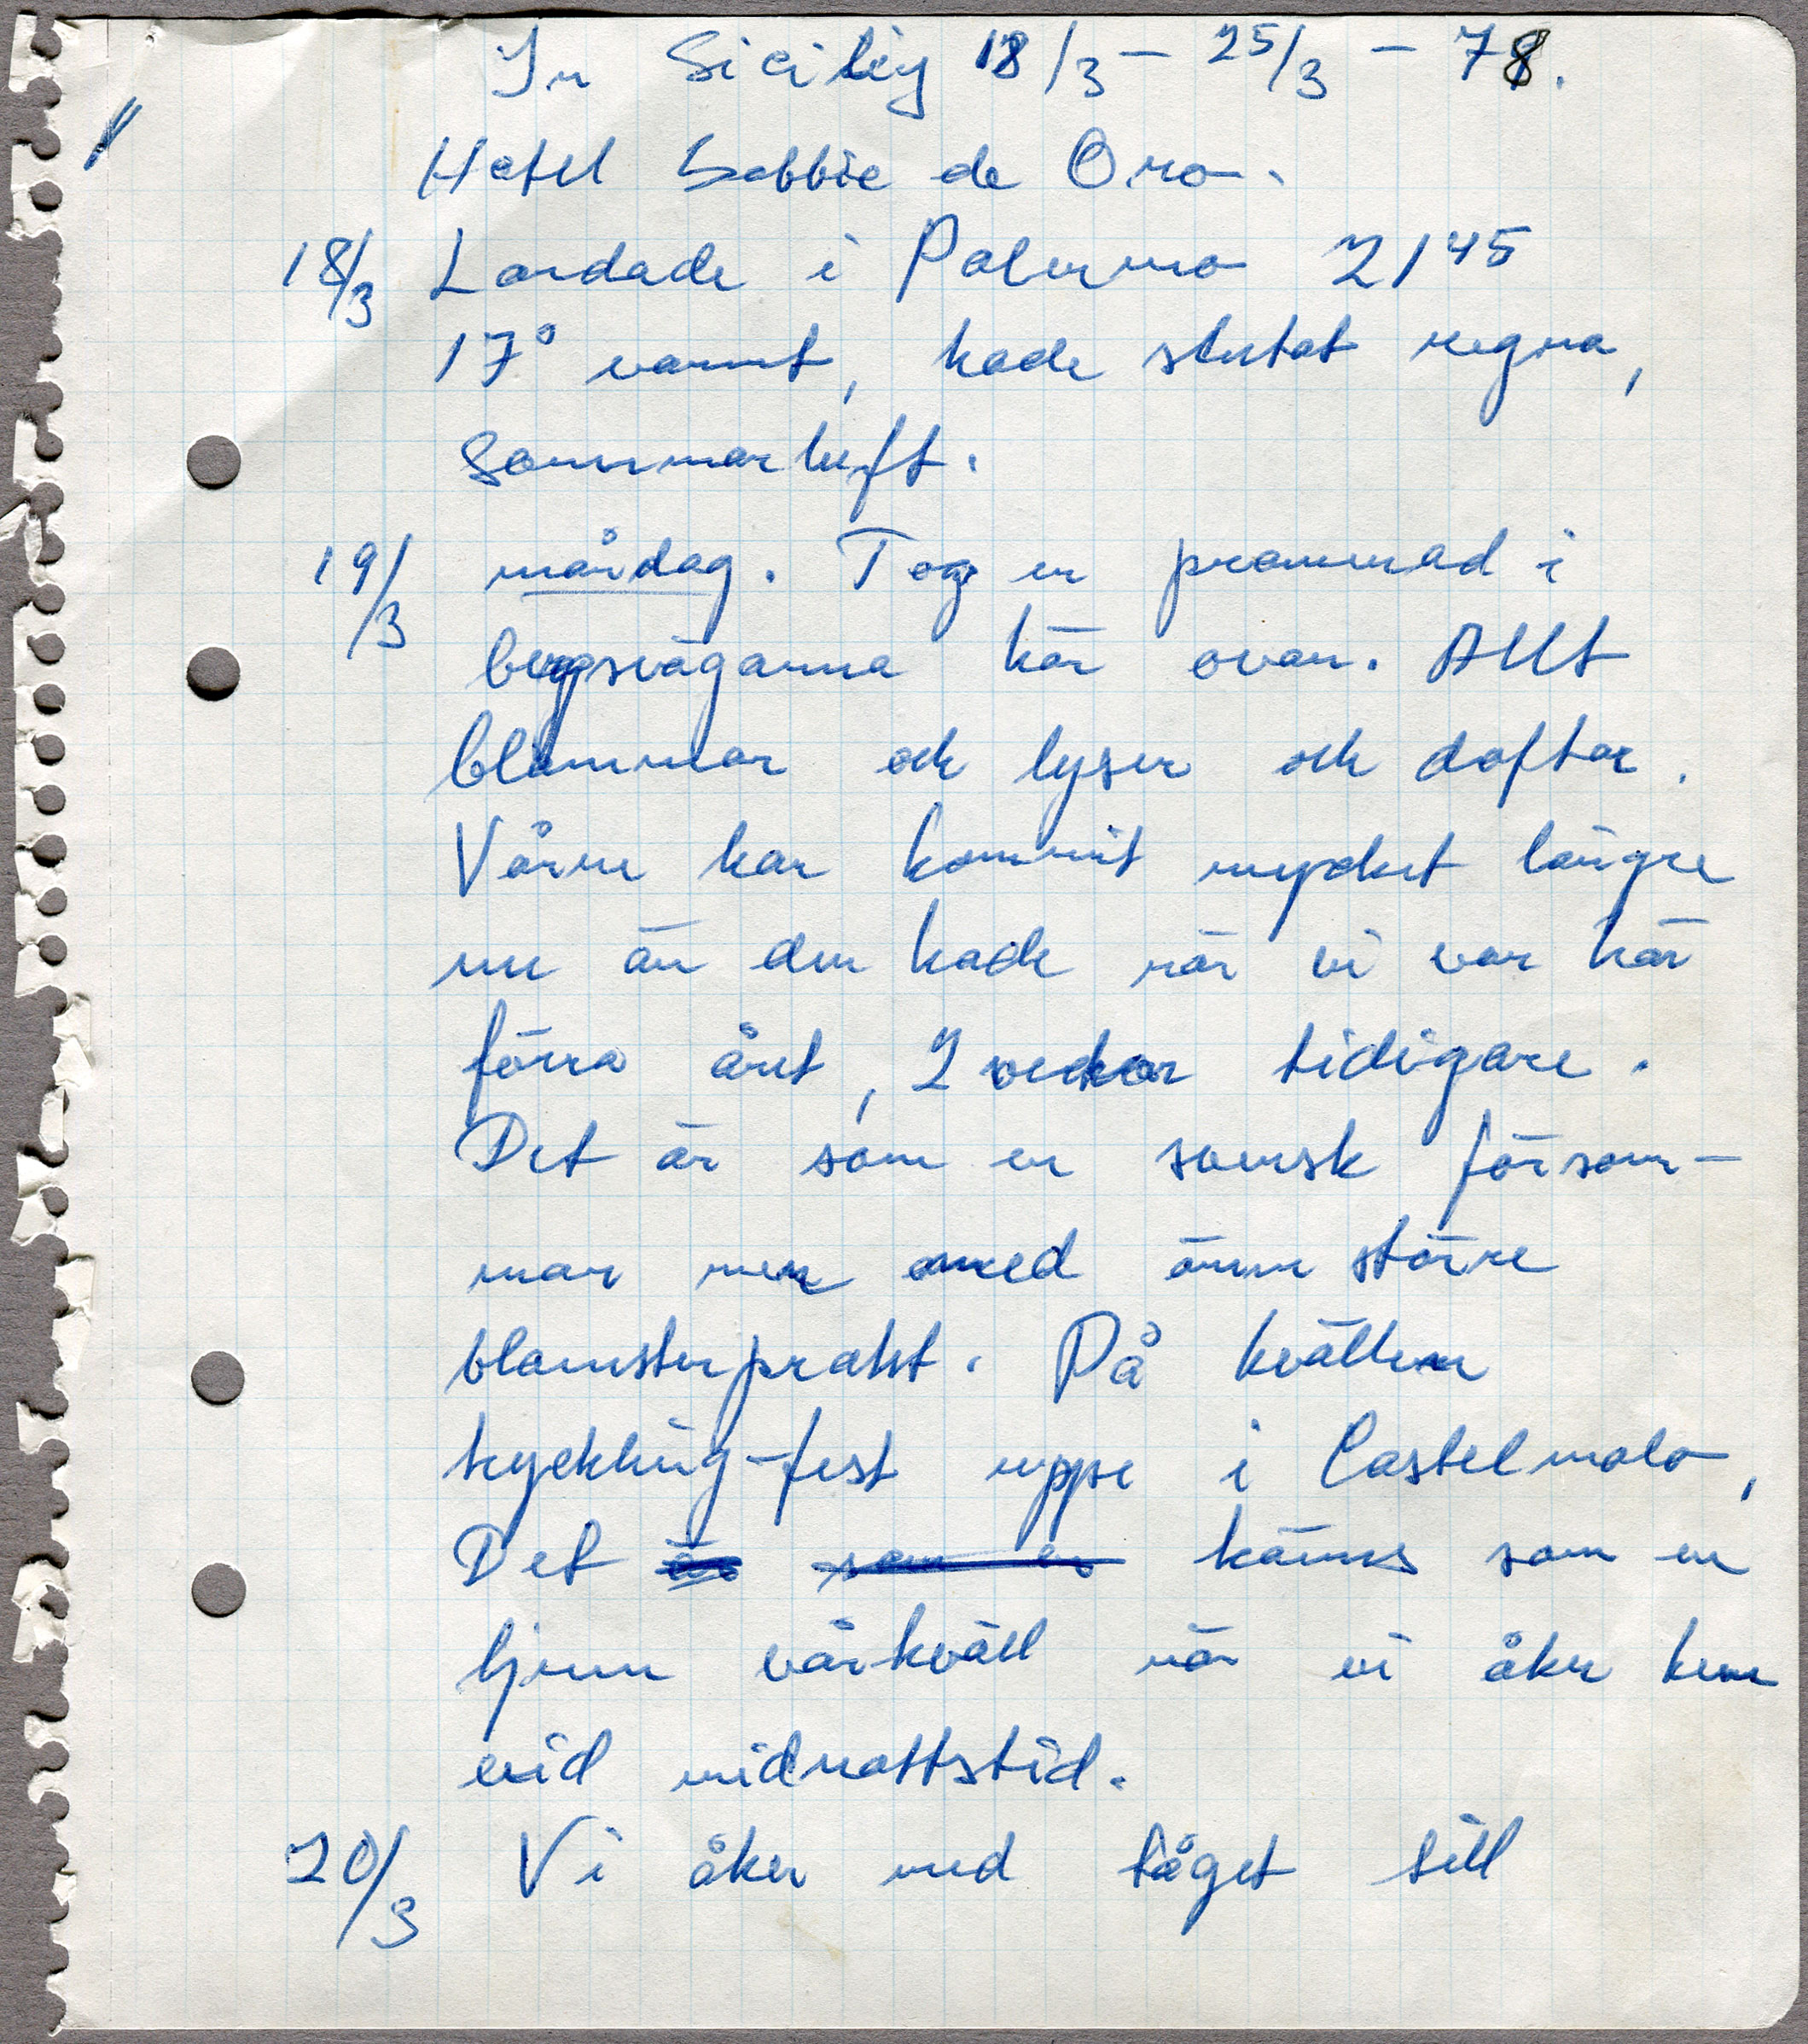 In Sicily 18/3 - 25/3 - 78.
Hotel Sabbie de Oro.
18/3 Landade i Palermo 21 45
17° varmt, hade slutat regna,
sommarluft.
19/3 måndag. Tog en promenad i
bergsvägarna här ovan. Allt
blommar och lyser och doftar.
Våren har kommit mycket längre
nu än den hade när vi var här
förra året, 2 veckor tidigare.
Det är som en svensk försom-
mar men med ännu större
blomsterprakt. På kvällen
kyckling-fest uppe i Castelmola,
Det är som en känns som en
ljum vårkväll när vi åker hem
vid midnattstid.
20/3 Vi åker med tåget till